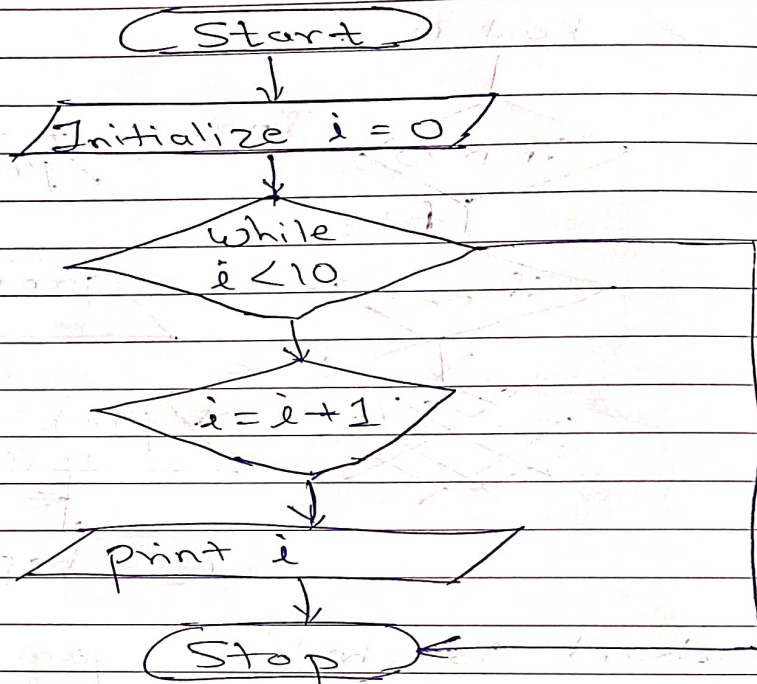 Start
Initialize i = 0
while
i < 10
i = i + 1
print i
Stop